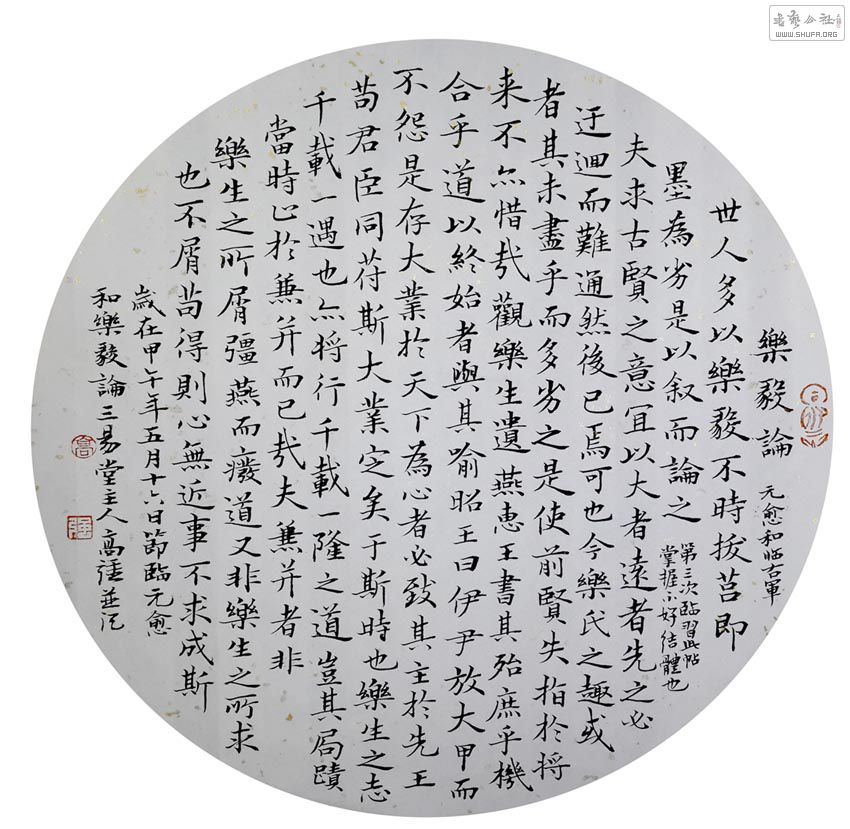 樂毅論
元愈和临右軍
世人多以樂毅不時拔莒即
墨為劣是以叙而論之
第三次臨習此帖
掌握不好结體也
夫求古賢之意宜以大者遠者先之必
迂迴而難通然後已焉可也今樂氏之趣或
者其未盡乎而多劣之是使前賢失指於将
来不亦惜哉觀樂生遺燕惠王書其殆庶乎機
合乎道以終始者與其喻昭王曰伊尹放大甲而
不怨是存大業於天下為心者必致其主於先王
苟君臣同苻斯大業定矣于斯時也樂生之志
千載一遇也亦将行千載一隆之道豈其局蹟
當時止於蒹并而已哉夫蒹并者非
樂生之所屑彊燕而癈道又非樂生之所求
也不屑苟得則心無近事不求成斯
歲在甲午年五月十六日節臨元愈
和樂毅論三易堂主人高强並记
WWW.SHUFA.ORG